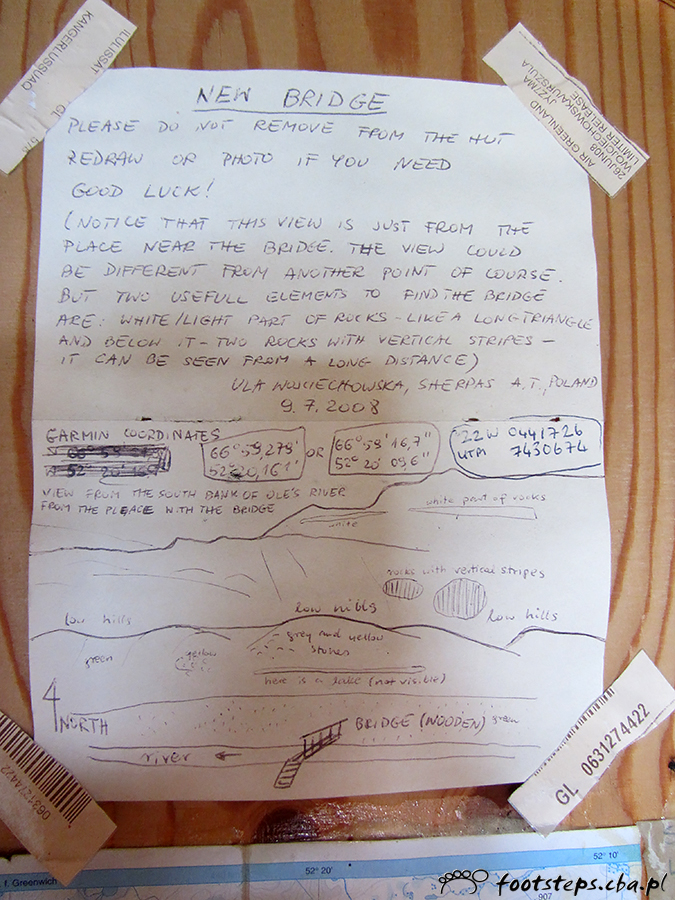 ILULISSAT
KANGERLUSSUAQ
GL
26JUN08
AIR GREENLAND
JYZ7MA
WOJCIECHOWSKA/URSZULA
LIMITED RELEASE
NEW BRIDGE
PLEASE DO NOT REMOVE FROM THE HUT
REDRAW OR PHOTO IF YOU NEED
GOOD LUCK!
(NOTICE THAT THIS VIEW IS JUST FROM THE
PLACE NEAR THE BRIDGE. THE VIEW COULD
BE DIFFERENT FROM ANOTHER POINT OF COURSE.
BUT TWO USEFULL ELEMENTS TO FIND THE BRIDGE
ARE: WHITE/LIGHT PART OF ROCKS - LIKE A LONG TRIANGLE
AND BELOW IT - TWO ROCKS WITH VERTICAL STRIPES -
IT CAN BE SEEN FROM A LONG DISTANCE)
ULA WOJCIECHOWSKA, SHERPAS A.T., POLAND
9.7.2008
GARMIN COORDINATES
66° 59,279' OR 66° 59' 16,7" 22W 0441726
52° 20,161' 52° 20' 09,6" UTM 7430674
VIEW FROM THE SOUTH BANK OF OLE'S RIVER
FROM THE PLEACE WITH THE BRIDGE
white part of rocks
white
rocks with vertical stripes
low hills low hills low hills
green yellow grey and yellow
stones
here is a lake (not visible)
NORTH BRIDGE (WOODEN) green
river
0631274422
GL 0631274422
f. Greenwich 52° 20' 52° 10'
907
footsteps.cba.pl